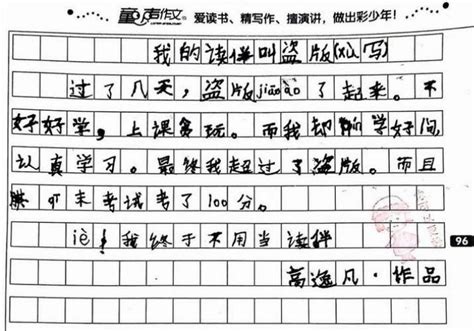 童声作文 爱读书、精写作、擅演讲,做出彩少年!
我的读伴叫盗版(续写)
过了几天,盗版jiāo ào了起来。不
好好学,上课多玩。而我却 学好问
认真学习。最终我超过了盗版。而且
期末考试考了100分。
iè!我终于不用当读伴
高逸凡·作品
96